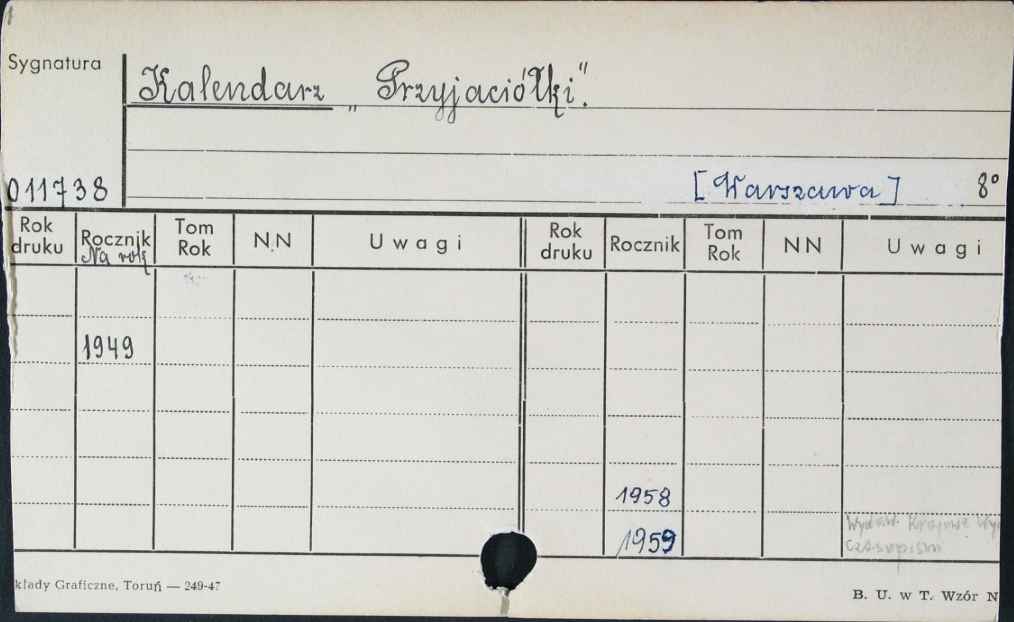 Sygnatura
Kalendarz „Przyjaciółki".
011738
[Warszawa] 8°
Rok druku Rocznik Na rok Tom Rok NN Uwagi Rok druku Rocznik Tom Rok NN Uwagi
1949
1958
1959 Wydaw. Krajowe
Czasopism
kłady Graficzne, Toruń — 249-47
B. U. w T. Wzór N